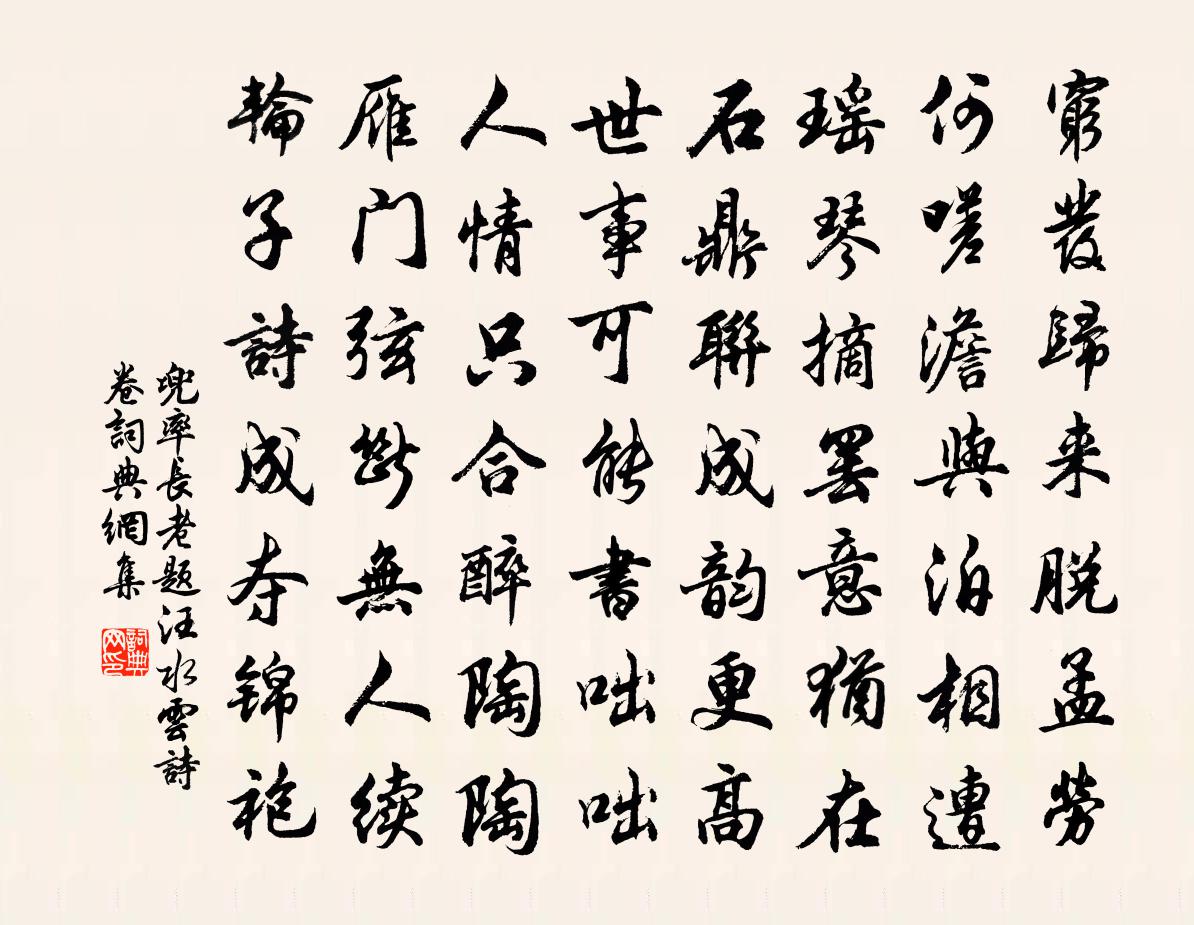 窮發歸来脱孟勞
何嗟澹與泊相遭
瑶琴摘罢意猶在
石鼎聯成韵更高
世事可能書咄咄
人情只合醉陶陶
雁门弦斷無人续
輪子詩成夺锦袍
兜率長老题汪水雲詩
卷詞典網集
詞典
网印